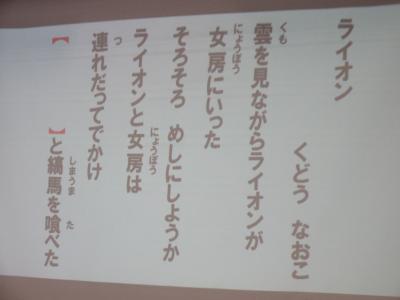 ライオン
くどう なおこ
雲を見ながらライオンが
女房にいった
そろそろ めしにしようか
ライオンと女房は
連れだってでかけ
【 】と縞馬を喰べた